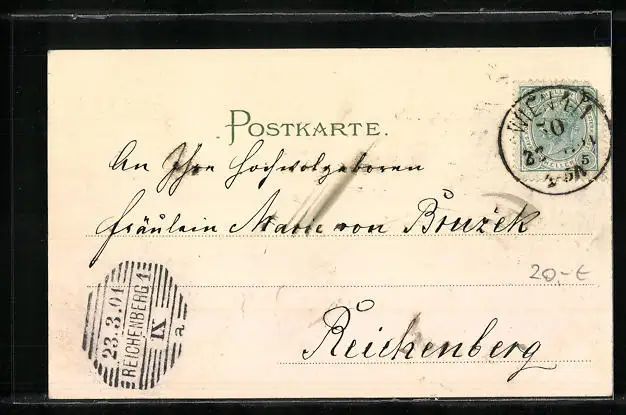 POSTKARTE.
An Ihre Hochwolgeboren
Fräulein Marie von Bruźek
Reichenberg
20,-€
WIEN
5
23.3.01
REICHENBERG 1
IX
a